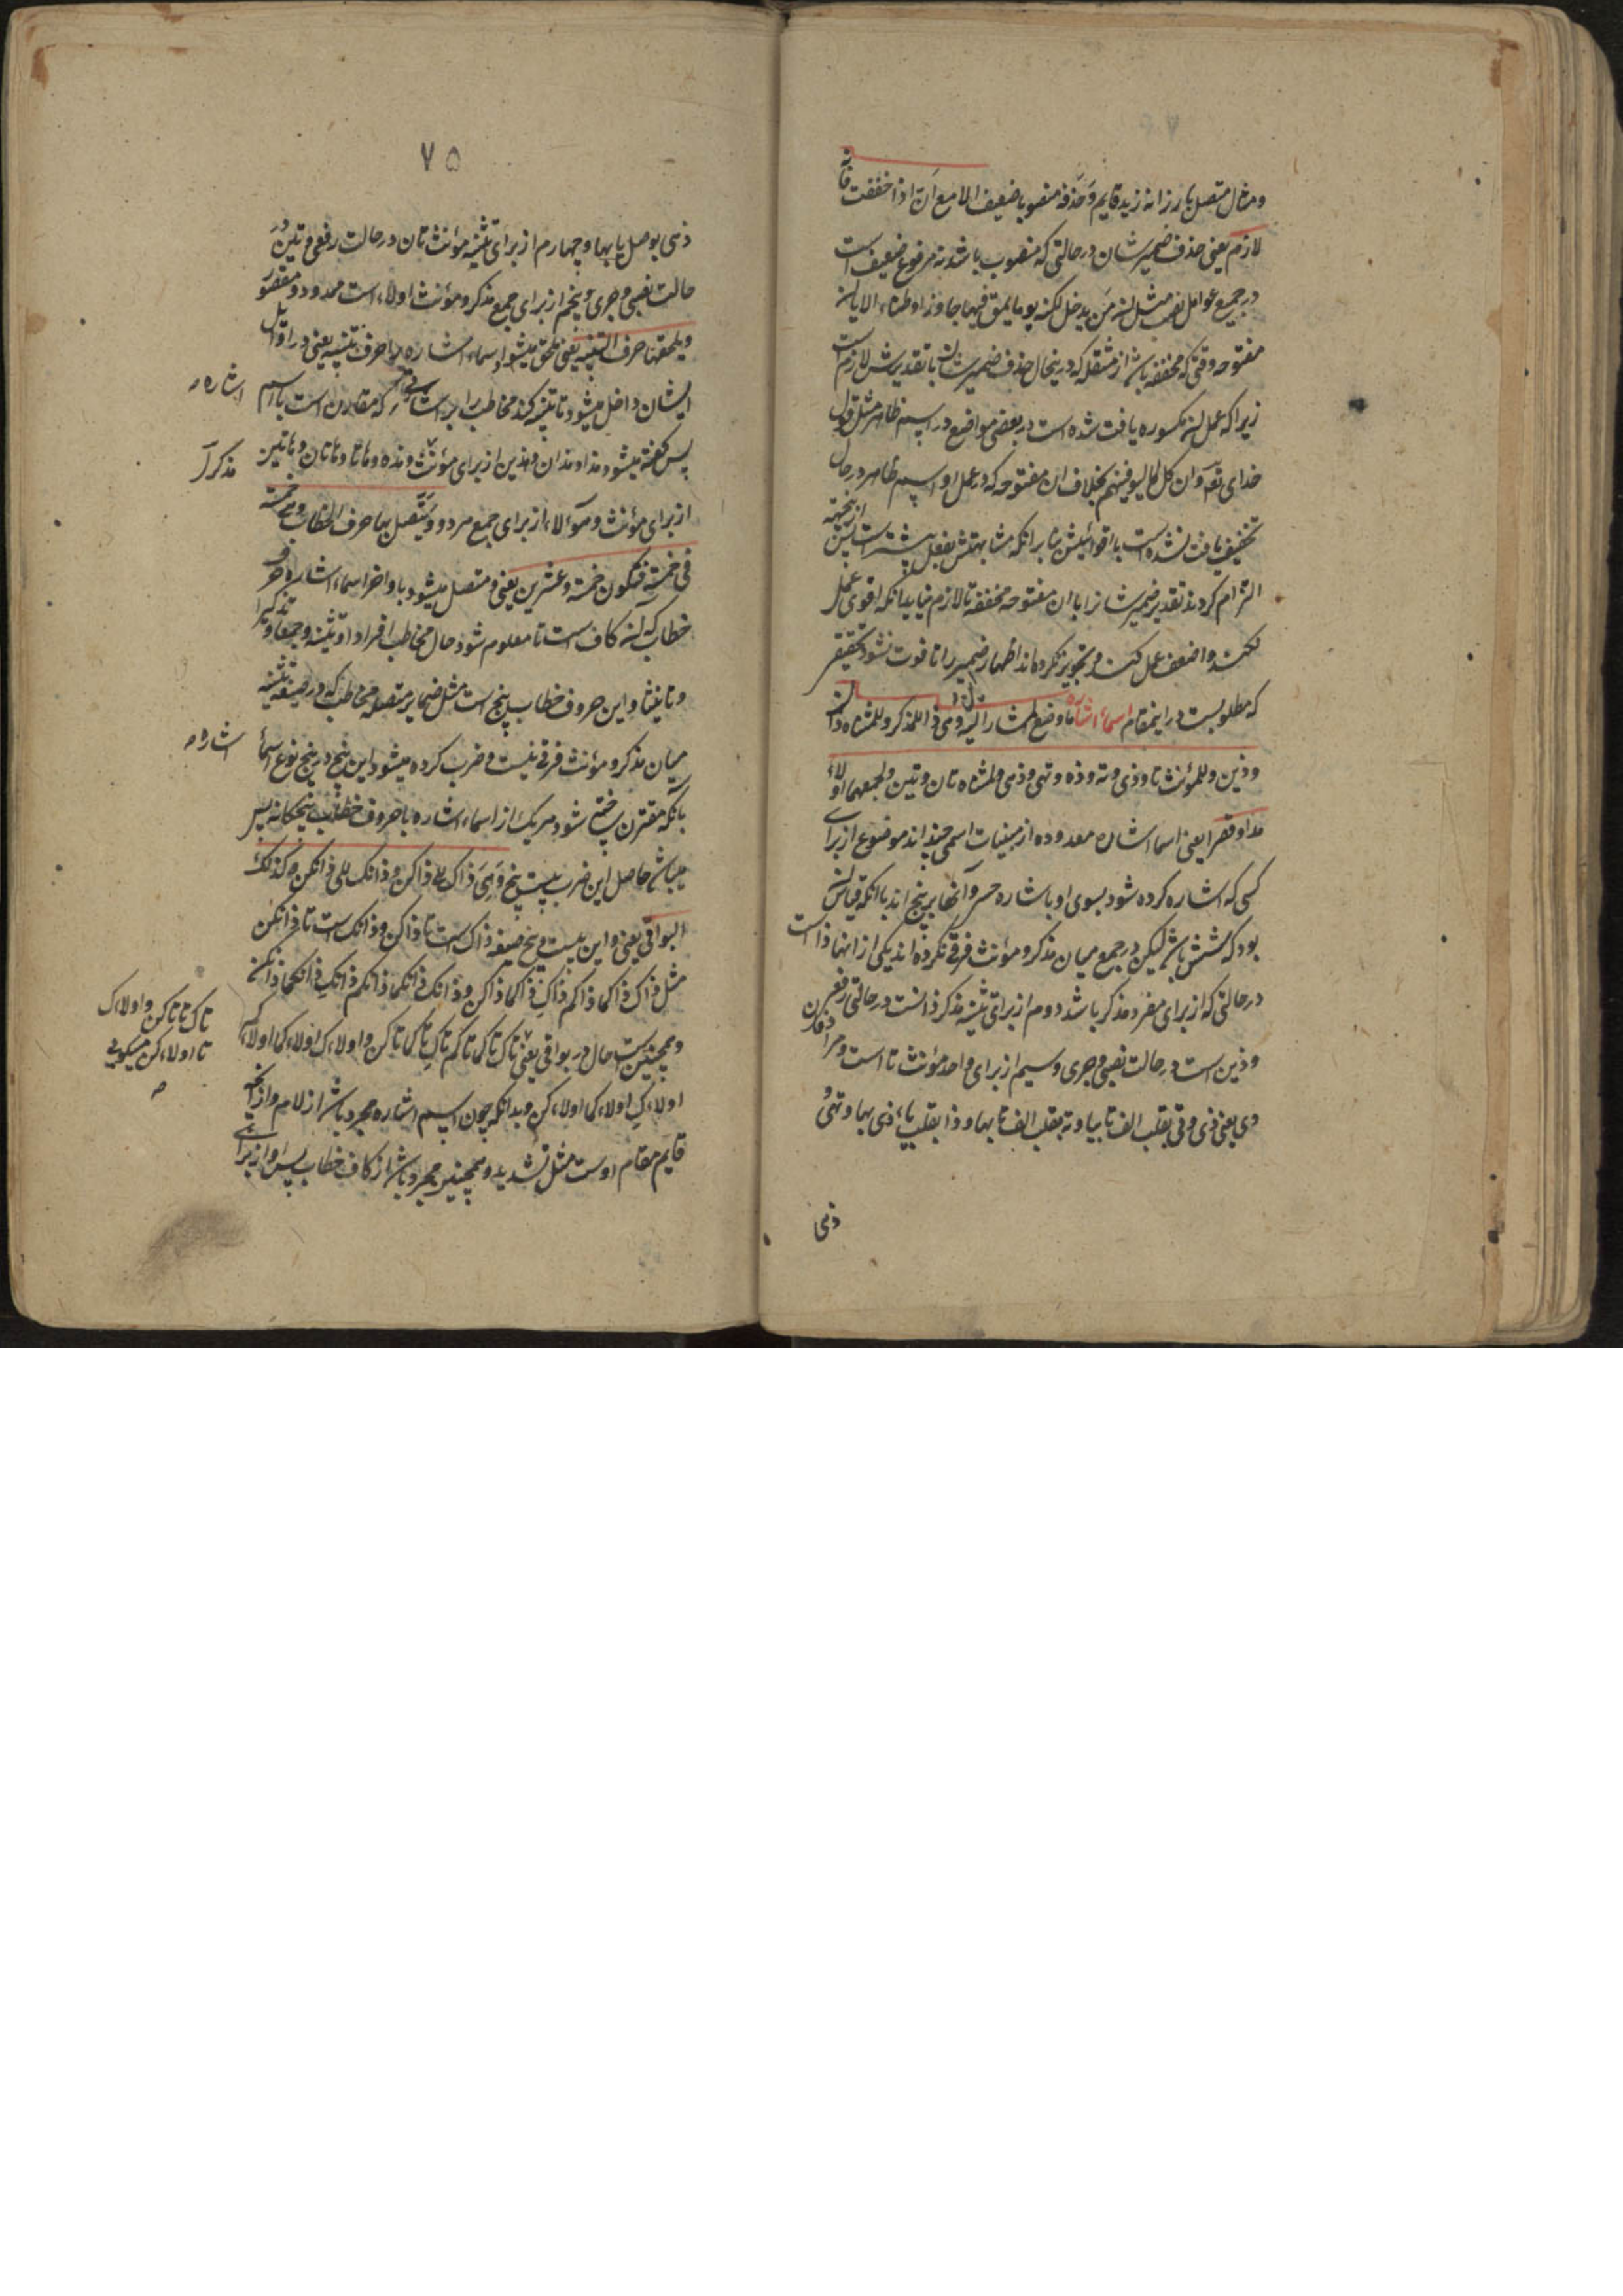 ومثال متصل بارز انه زید قایم وحذفه منصوبا ضعیف الا مع ان اذا خففت فانه
لازم یعنی حذف ضمیر شان در حالتی که منصوب باشد نه مرفوع ضعیف است
در جمیع عوامل نصب مثل ان من یدخل الکنیسة یوما یلق فیها جاذرا وظباء الا با ان
مفتوحه وقتی که مخففه باشد از مثقله که در ینحال حذف ضمیر شان با تقدیرش لازم است
زیرا که عمل ان مکسوره یافت شده است در بعضی مواضع در اسم ظاهر مثل قول
خدای تعه وان کل لما لیوفینهم بخلاف ان مفتوحه که در عمل او اسم ظاهر در حال
تخفیف یافت نشده است با اقوائیتش بنا بر انکه مشابهتش بفعل بیشتر است ازینجهه پس
التزام کردند تقدیر ضمیر شانرا با ان مفتوحه مخففه تا لازم نیاید انکه اقوی عمل
نکند واضعف عمل کند وتجویز نکرده اند اظهار ضمیر را تا فوت نشود تخفیفی
که مطلوبست در اینمقام اسماء اشاره ما وضع لمشار الیه وهی ذا للمذکر وللمثناه ذان
وذین وللمؤنث تا وذی وته وذه وتهی وذهی ولمثناه تان وتین ولجمعهما اولاء
مدا وقصرا یعنی اسماء اشاره معدوده از مبنیات اسمی چند اند موضوع از برای
کسی که اشاره کرده شود بسوی او باشاره حسی وانها بر پنج اند با انکه قیاس ان
بود که شش باشد لیکن در جمع میان مذکر ومؤنث فرق نکرده اند یکی از انها ذا است
در حالتی که از برای مفرد مذکر باشد دوم از برای تثنیه مذکر ذانست در حالتی رفعی
وذین است در حالت نصبی وجری وسیم از برای واحد مؤنث تا است ومرادفان
وی یعنی ذی وتی بقلب الف تا بیا وته بقلب الف تا بها وذه بقلب یاء ذی بها وتهی و
ذهی
۷۵
ذهی بوصل یا بها وچهارم از برای تثنیه مؤنث تان در حالت رفعی وتین در
حالت نصبی وجری وپنجم از برای جمع مذکر ومؤنث اولاء است ممدود ومقصور
ویلحقها حرف التنبیه یعنی ملحق میشود اسماء اشاره را حرف تنبیه یعنی در اوایل
ایشان داخل میشود تا تنبیه کند مخاطب را بر اشاره که مقارن است با اسم
اشاره
پس گفته میشود هذا وهذان وهذین از برای مؤنث وهذه وهاتا وهاتان وهاتین
مذکر
از برای مؤنث وهؤلاء از برای جمع هردو ویتصل بها حرف الخطاب وهی خمسة
فی خمسة فتکون خمسة وعشرین یعنی ومتصل میشود باواخر اسماء اشاره حرف
خطاب که ان کاف است تا معلوم شود حال مخاطب افرادا وتثنیة وجمعا وتذکیرا
وتانیثا واین حروف خطاب پنج است مثل ضمایر متصله مخاطب که در صیغه تثنیه
میان مذکر ومؤنث فرق نیست وضرب کرده میشود این پنج در پنج نوع اسماء
اشاره
بانکه مقترن ساخته شود هریک از اسماء اشاره با حروف خطاب پنجکانه پس
میباشد حاصل این ضرب بیست پنج وهی ذاک الی ذاکن وذانک الی ذانکن وکذلک
البواقی یعنی واین بیست وپنج صیغه ذاک است تا ذاکن وذانک است تا ذانکن
مثل ذاک ذاکما ذاکم ذاک ذاکما ذاکن وذانک ذانکما ذانکم ذانک ذانکما ذانکن
وهمچنین است حال در بواقی یعنی تاک تاکما تاکم تاک تاکما تاکن واولاءک اولاءکما اولاءکم
تاک تا تاکن واولاءک
تا اولاءکن میگویی
اولاءک اولاءکما اولاءکن وبدانکه چون اسم اشاره مجرد باشد از لام واز انچه
قایم مقام اوست مثل تشدید وهمچنین مجرد باشد از کاف خطاب پس او از برای